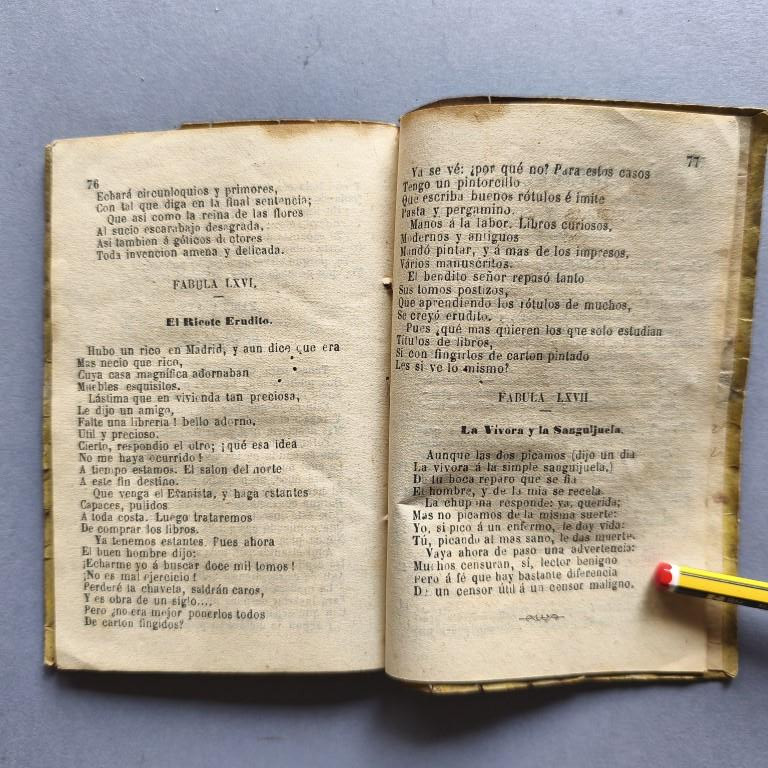 76
Echará circunloquios y primores,
Con tal que diga en la final sentencia;
Que asi como la reina de las flores
Al sucio escarabajo desagrada,
Asi tambien á góticos doctores
Toda invencion amena y delicada.
FABULA LXVI.
El Ricote Erudito.
Hubo un rico en Madrid, y aun dice que era
Mas necio que rico,
Cuya casa magnífica adornaban
Muebles esquisitos.
Lástima que en vivienda tan preciosa,
Le dijo un amigo,
Falte una libreria! bello adorno.
Util y precioso.
Cierto, respondio el otro; ¡qué esa idea
No me haya ocurrido!
A tiempo estamos. El salon del norte
A este fin destino.
Que venga el Evanista, y haga estantes
Capaces, pulidos
A toda costa. Luego trataremos
De comprar los libros.
Ya tenemos estantes. Pues ahora
El buen hombre dijo:
¡Echarme yo á buscar doce mil tomos!
¡No es mal ejercicio!
Perderé la chaveta, saldrán caros,
Y es obra de un siglo....
Pero ¿no era mejor ponerlos todos
De carton fingidos?
77
Ya se vé: ¿por qué no? Para estos casos
Tengo un pintorcillo
Que escriba buenos rótulos é imite
Pasta y pergamino.
Manos á la labor. Libros curiosos,
Modernos y antiguos
Mandó pintar, y á mas de los impresos,
Vários manuscritos.
El bendito señor repasó tanto
Sus tomos postizos,
Que aprendiendo los rótulos de muchos,
Se creyó erudito.
Pues ¿qué mas quieren los que solo estudian
Titulos de libros,
Si con fingirlos de carton pintado
Les si ve lo mismo?
FABULA LXVII
La Vívora y la Sanguijuela.
Aunque las dos picamos (dijo un dia
La vívora á la simple sanguijuela,)
De tu boca reparo que se fia
El hombre, y de la mia se recela.
La chupona responde: ya, querida;
Mas no picamos de la misma suerte:
Yo, si pico á un enfermo, le doy vida:
Tú, picando al mas sano, le das muerte.
Vaya ahora de paso una advertencia:
Muchos censuran, sí, lector benigno
Pero á fé que hay bastante diferencia
De un censor útil á un censor maligno.